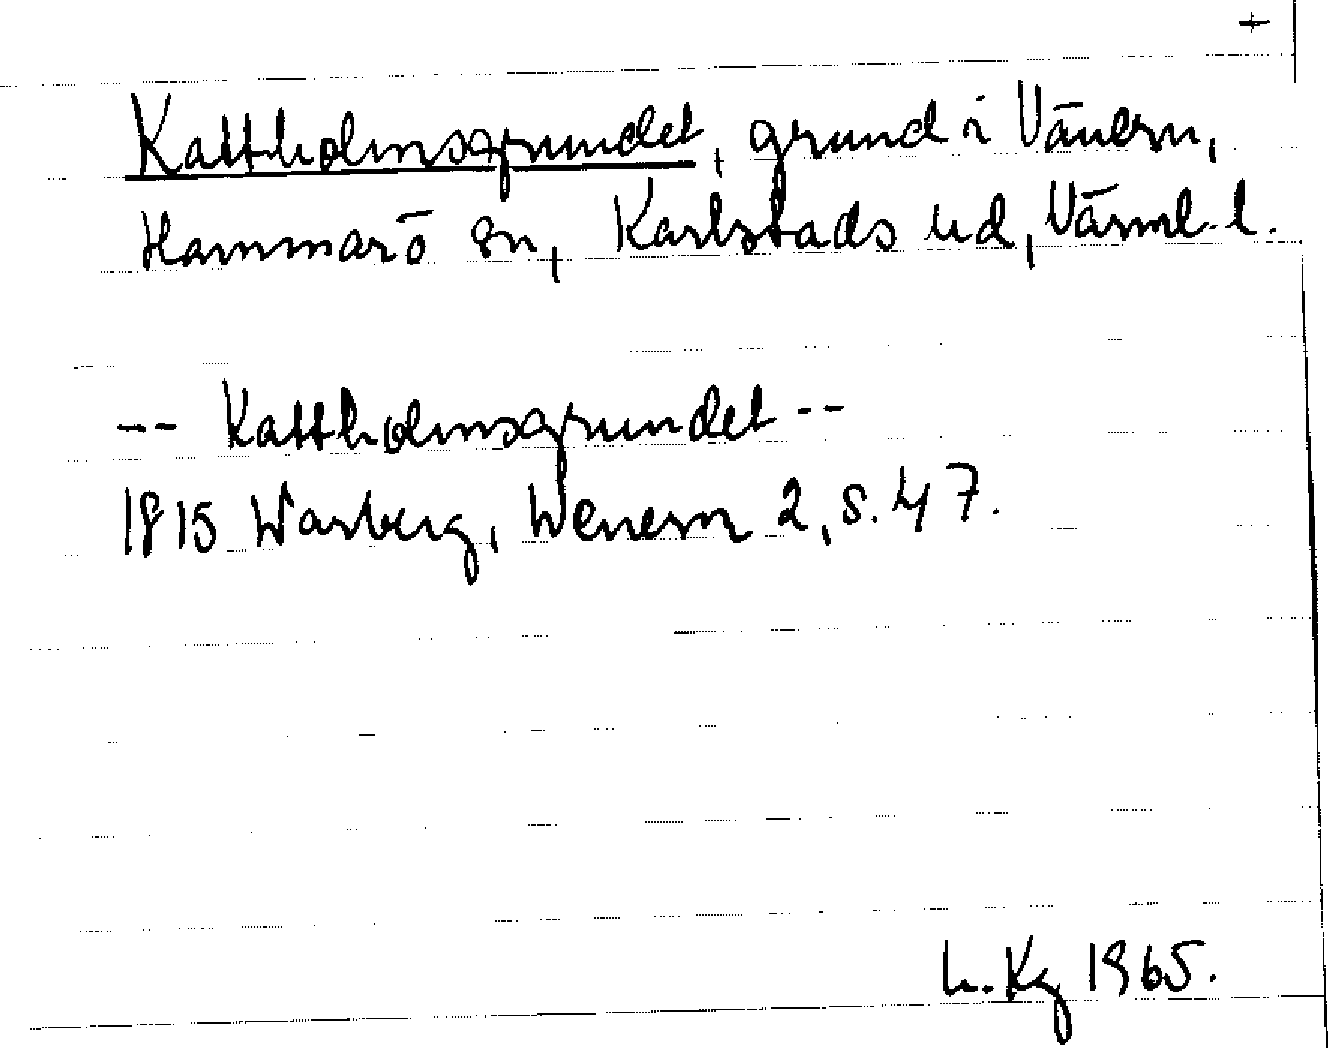 +
Kattholmsgrundet, grund i Vänern,
Hammarö sn, Karlstads ud, Värml. l.
-- Kattholmsgrundet --
1815 Warberg, Wenern 2, s. 47.
L. Kg 1965.